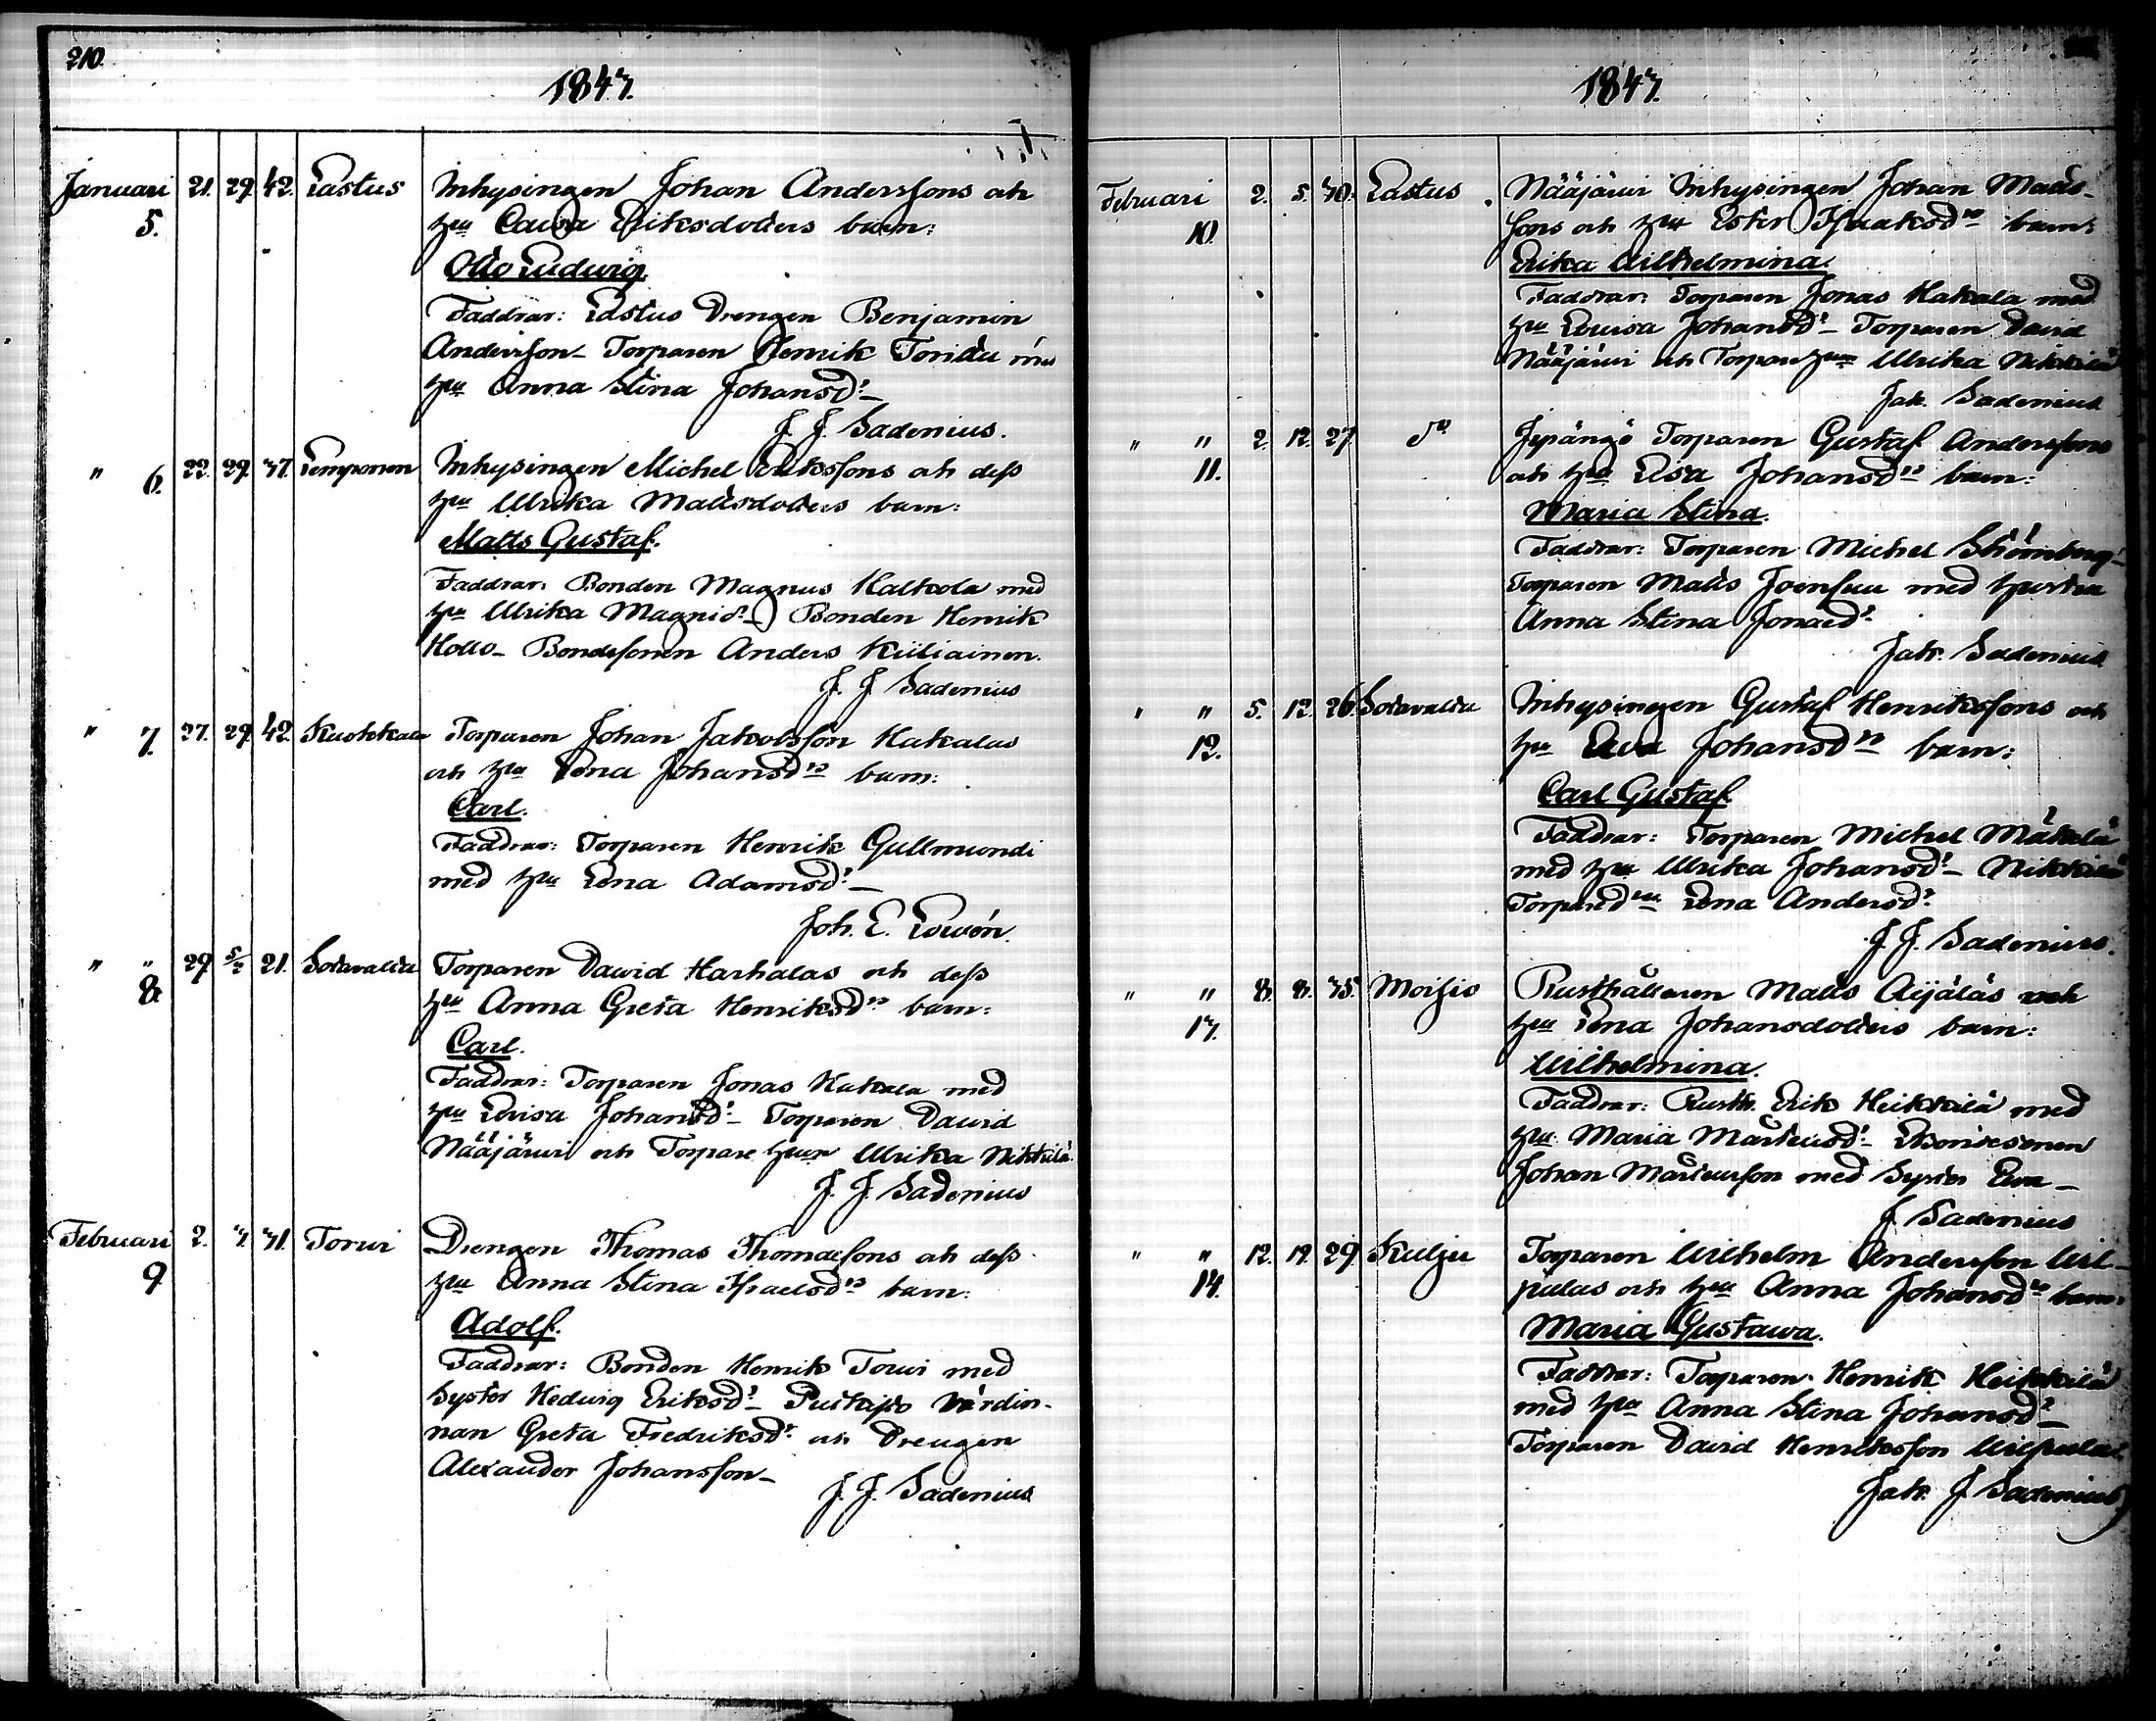 210.
1847.
Januari 21. 29. 42. Lastus Inhysingen Johan Anderssons och
5. hu Caisa Eriksdotters barn:
Otto Ludwig
Faddrar: Lastus Drengen Benjamin
Andersson – Torparen Henrik
hu Anna Stina Johansdr –
J. J. Sadenius.
" 6. 22. 29. 37. Temponen Inhysingen Michel Erikssons och dess
hu Ulrika Mattsdotters barn:
Matts Gustaf.
Faddrar: Bonden Magnus Kalkola med
hu Ulrika Magnidr – Bonden Henrik
Hollo – Bondesonen Anders Kiiliainen.
J. J. Sadenius
" 7. 27. 29. 42. Kuokkala Torparen Johan Jakobsson Hakalas
och hu Lena Johansdrs barn:
Carl.
Faddrar: Torparen Henrik Gullmundi
med hu Lena Adamsdr –
Joh. E. Lowén.
" " 29. 5/2 21. Sotavalta Torparen David Harhalas och dess
8. hu Anna Greta Henriksdrs barn:
Carl.
Faddrar: Torparen Jonas Hakala med
hu Lovisa Johansdr – Torparen David
Nääjärvi och Torpare hun Ulrika Nikkilä.
J. J. Sadenius
Februari 2. 7. 31. Torvi Drengen Thomas Thomassons och dess
9 hu Anna Stina Israelsdrs barn:
Adolf.
Faddrar: Bonden Henrik Torvi med
Syster Hedwig Eriksdr – värdin-
nan Greta Fredriksdr och Drengen
Alexander Johansson –
J. J. Sadenius
1847.
Februari 2. 5. 30. Lastus Nääjärvi Inhysingen Johan Matts-
10. sons och hu Ester Isaaksdrs barn:
Erika Wilhelmina.
Faddrar: Torparen Jonas Hakala med
hu Lovisa Johansdr – Torparen David
Nääjärvi och Torpare hun Ulrika Nikkilä
Jak. Sadenius
" " 2. 12. 27. do Jepängö Torparen Gustaf Anderssons
11. och hu Lisa Johansdrs barn:
Maria Stina.
Faddrar: Torparen Michel Strömberg –
Torparen Matts Joensuu med hustru
Anna Stina Jonaedr
Jak. Sadenius
" " 5. 12. 26. Sotavalta Inhysingen Gustaf Henrikssons och
12. hu Eva Johansdrs barn:
Carl Gustaf.
Faddrar: Torparen Michel Mäkelä
med hu Ulrika Johansdr – Nikkilä
Lena Andersdr
J. J. Sadenius.
" " 8. 8. 35. Moisio Rusthållaren Matts Äijäläs och
13. hu Lena Johansdotters barn:
Wilhelmina.
Faddrar: Rusth. Erik Heikkilä med
hu Maria Mårtensdr – Bondesonen
Johan Mårtensson med Syster Eva –
J. Sadenius
" " 12. 19. 29. Kulju Torparen Wilhelm Andersson Wil-
14. pulas och hu Anna Johansdrs barn:
Maria Gustava.
Faddrar: Torparen Henrik Heikkilä
med hu Anna Stina Johansdr –
Torparen David Henriksson
Jak. J. Sadenius